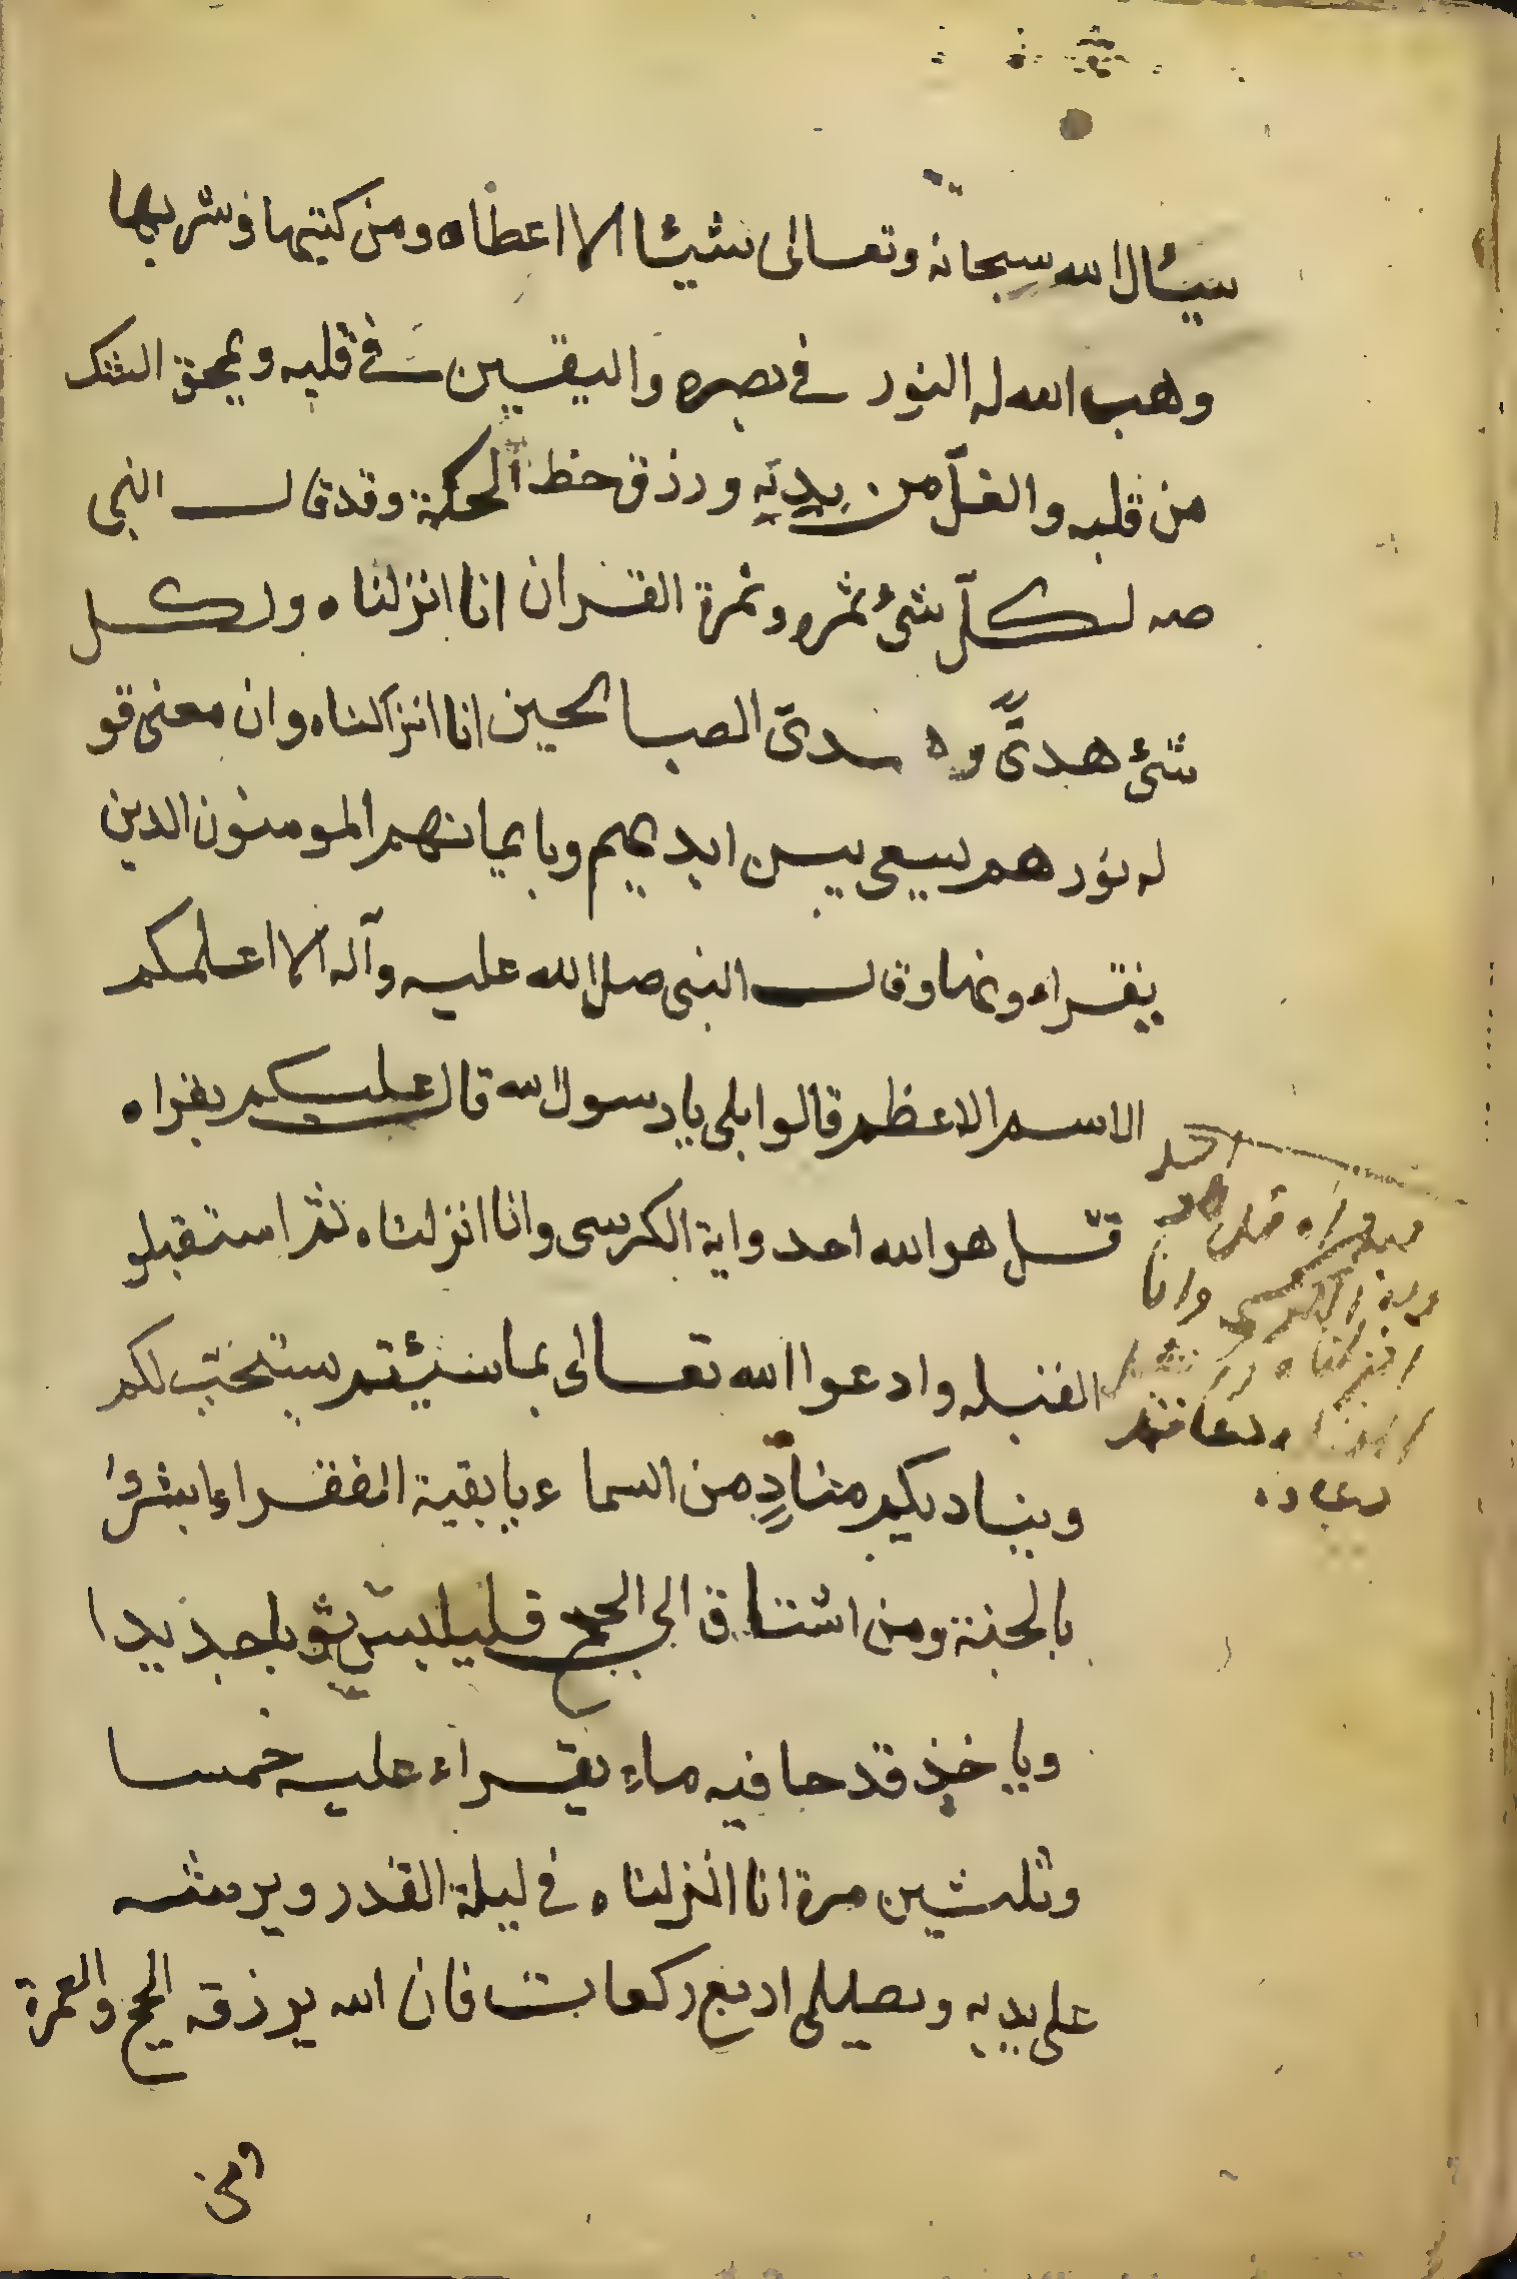 سيئال الله سبحانه وتعالى شيئا الا اعطاه ومن كتبها وشربها
وهب الله له النور في بصره واليقين في قلبه ويمحق الشك
من قلبه والغلّ من يديه ورزق حظ الحكمة وقد قال النبي
صه لكلّ شئ ثمره وثمرة القران انا انزلناه ولكل
شئ هدىً وهدى الصالحين انا انزلناه وان معنى قو
له نورهم يسعى بين ايديهم وبايمانهم المومنون الذين
يقراءونها وقال النبي صلى الله عليه وآله الا اعلمكم
الاسم الاعظم قالوا بلى يا رسول الله قال عليكم بقراه
قل هو الله احد واية الكرسى وانا انزلناه ثم استقبلو
القبله وادعوا الله تعالى بما شئتم ستجب لكم
وينادیكم منادٍ من السماء يا بقية الفقراء ابشروا
بالجنة ومن اشتاق الى الحج فليلبس ثوبا جديدا
وياخذ قدحا فيه ماء يقراء عليه خمسا
وثلثين مرة انا انزلناه في ليلة القدر ويرشه
على يديه ويصلى اربع ركعات فان الله يرزقه الحج والعمرة
ومن
احد
الكرسى وانا
انزلناه